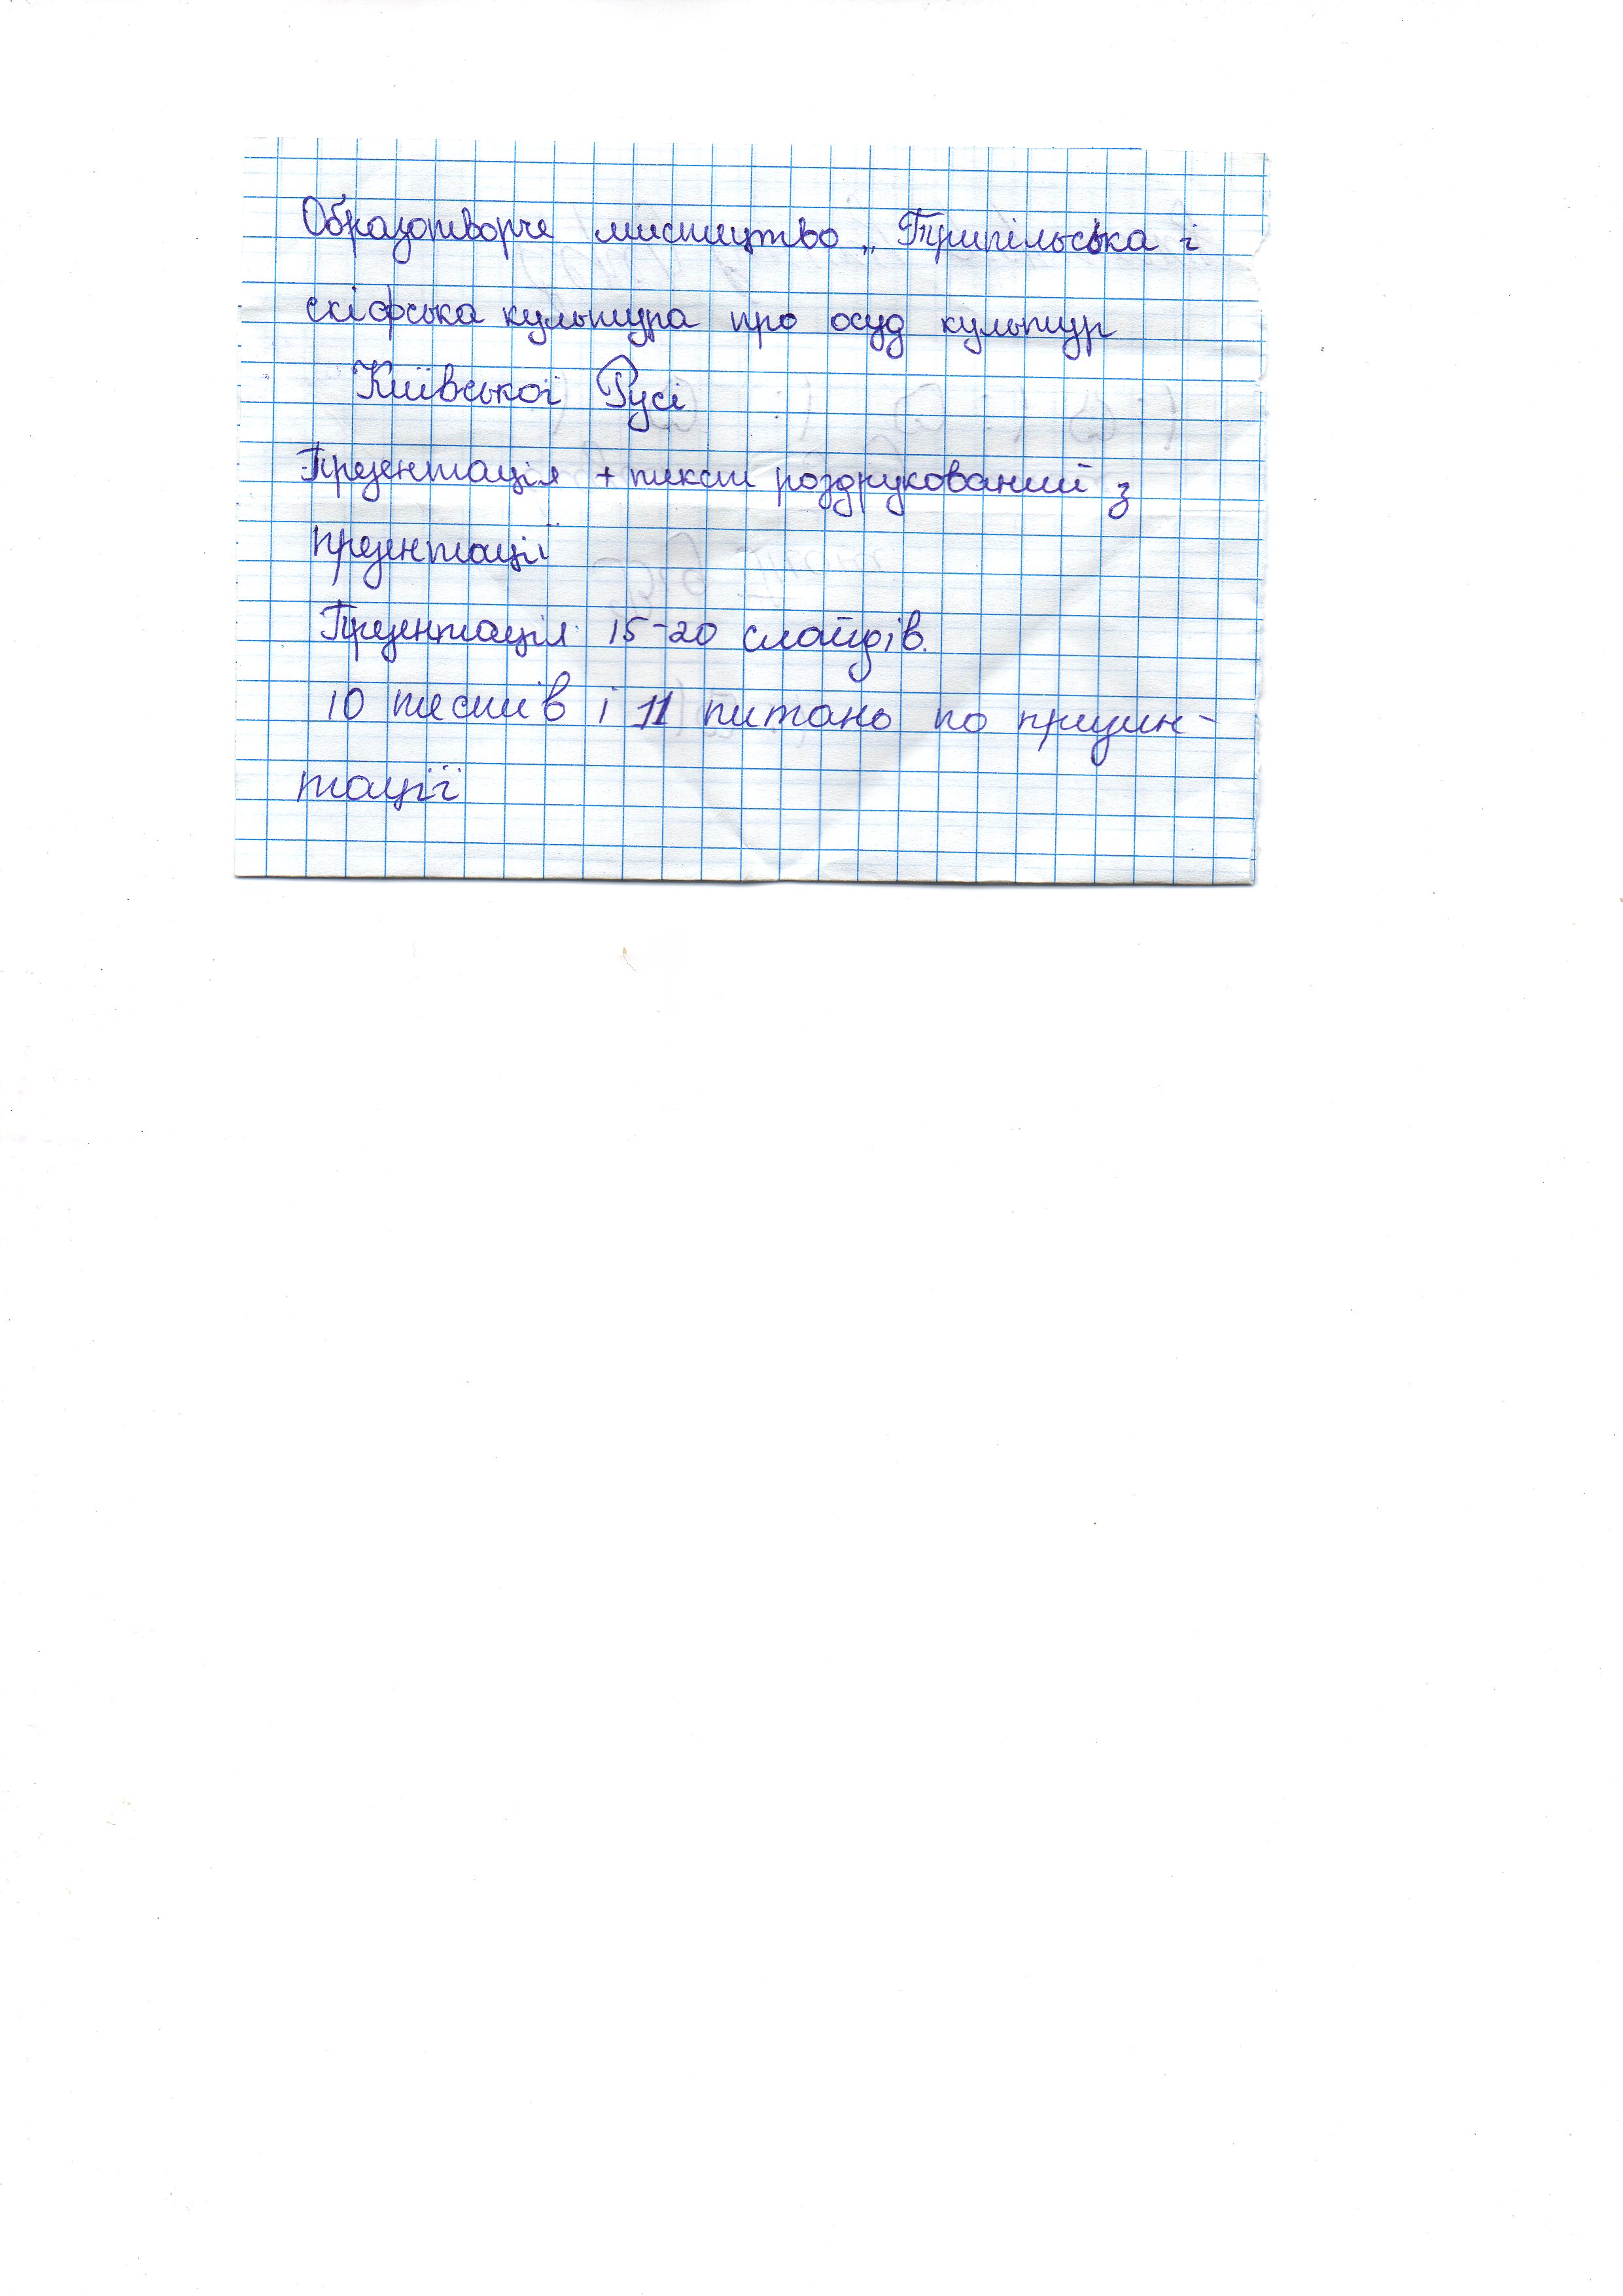 Образотворче мистецтво „Трипільська і
скіфська культура про осуд культур
Київської Русі
Презентація + текст роздрукований з
презентації
Презентація 15-20 слайдів.
10 тестів і 11 питань по презин-
тації